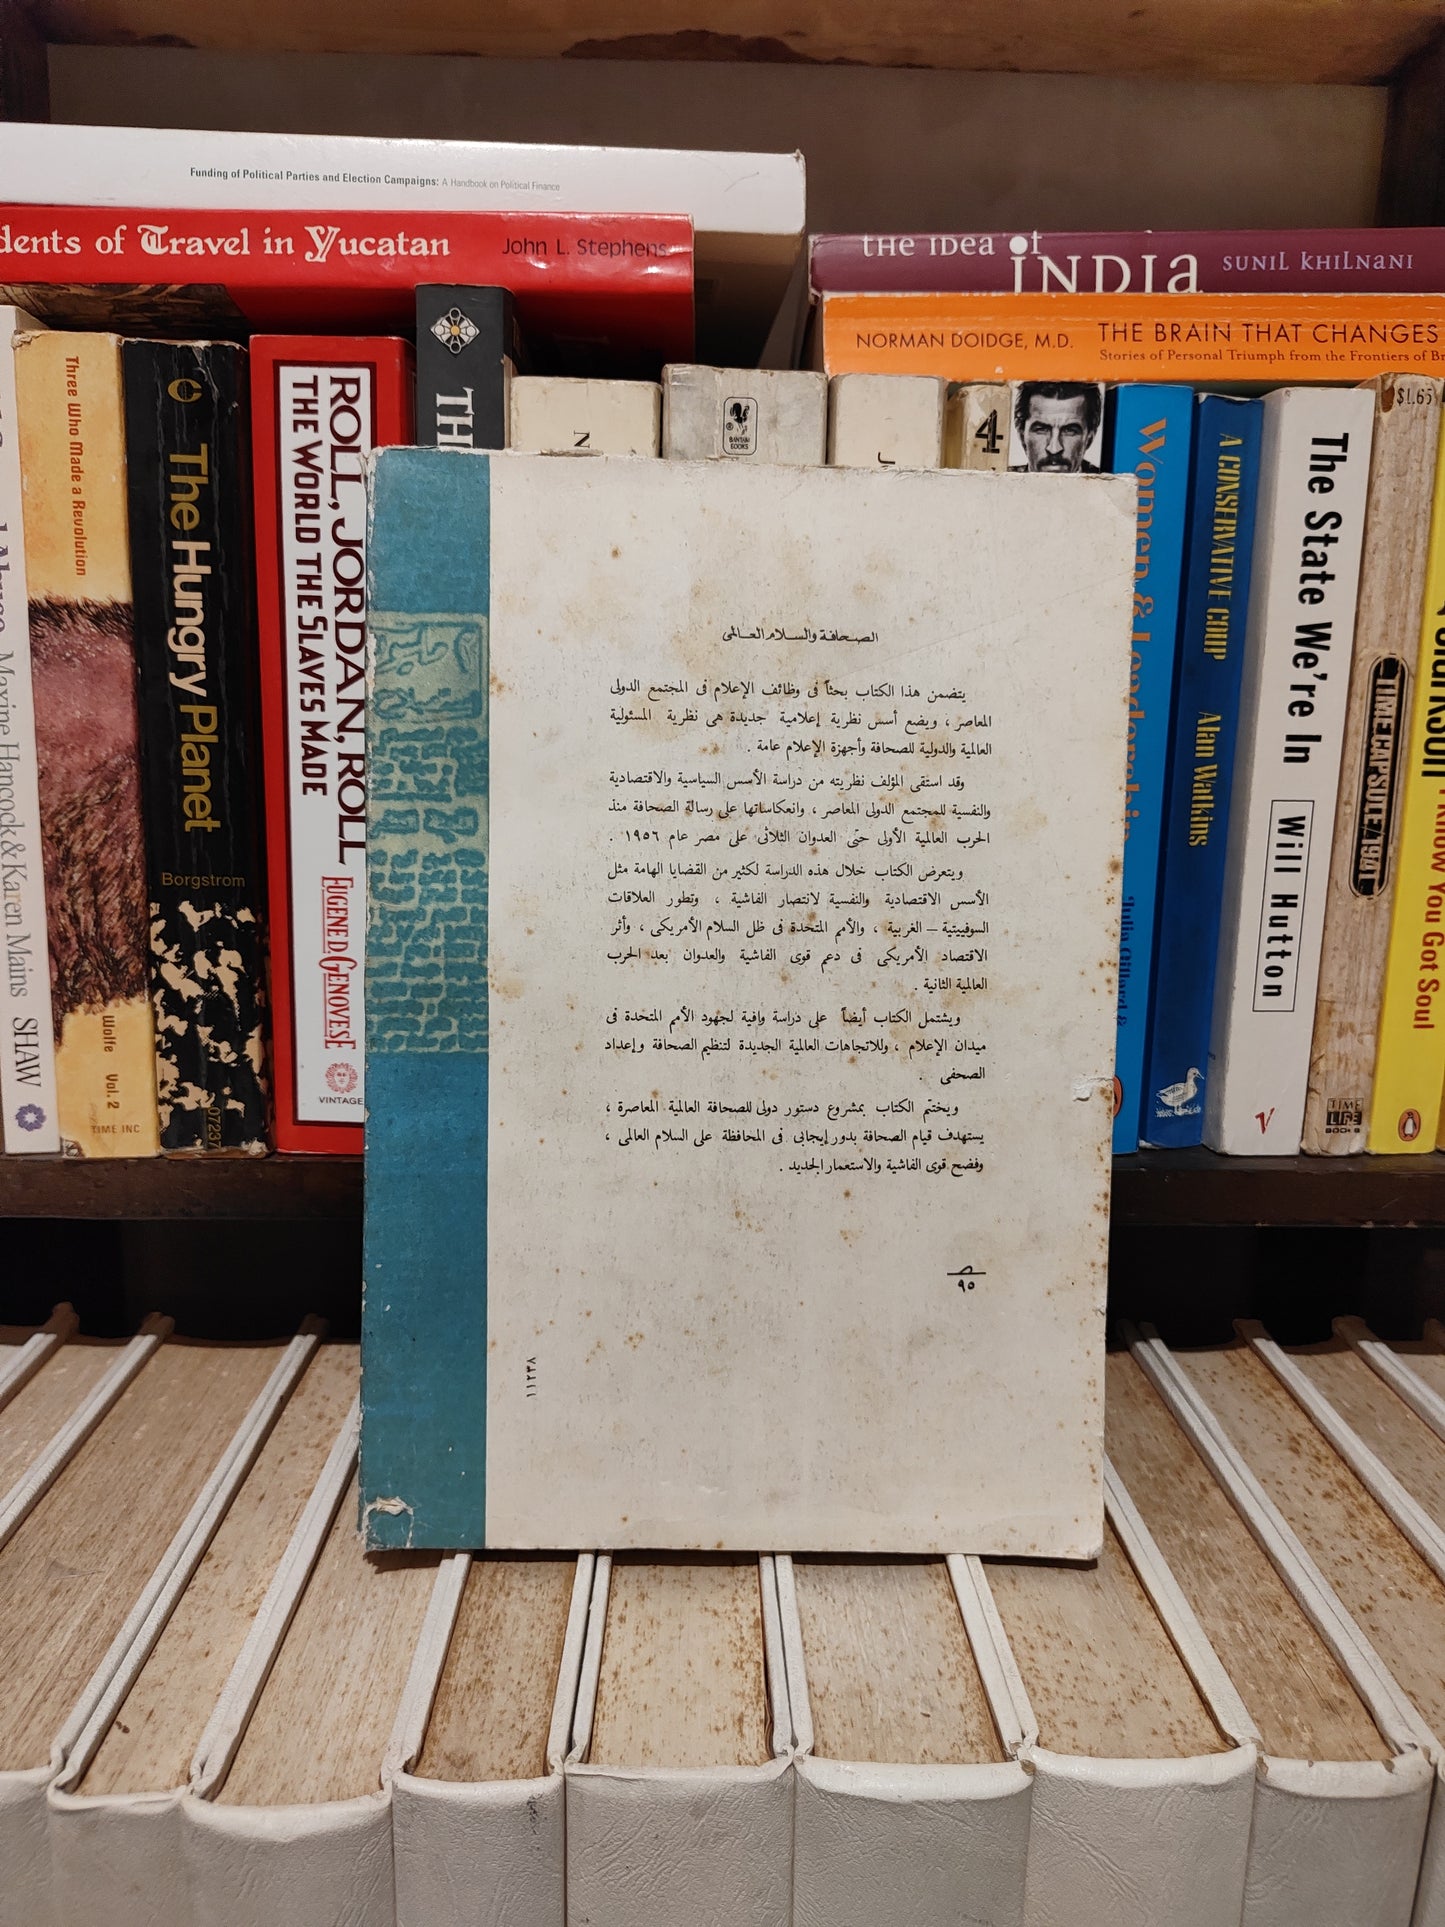 Funding of Political Parties and Election Campaigns: A Handbook on Political Finance
dents of Travel in Yucatan John L. Stephens
the idea of INDIA SUNIL KHILNANI
NORMAN DOIDGE, M.D. THE BRAIN THAT CHANGES
Stories of Personal Triumph from the Frontiers of Br
Maxine Hancock & Karen Mains SHAW
Three Who Made a Revolution Wolfe Vol. 2
TIME INC
The Hungry Planet
Borgstrom
07237
ROLL, JORDAN, ROLL
THE WORLD THE SLAVES MADE
EUGENE D. GENOVESE
VINTAGE
TH
N
BANTAM BOOKS
4
Women & Leadership Julia Gillard &
A CONSERVATIVE COUP Alan Watkins
The State We're In Will Hutton
V
$1.65
TIME CAPSULE/1941
TIME
LIFE
BOOKS
I Know You Got Soul
الصحافة والسلام العالمى
يتضمن هذا الكتاب بحثاً فى وظائف الإعلام فى المجتمع الدولى
المعاصر ، ويضع أسس نظرية إعلامية جديدة هى نظرية المسئولية
العالمية والدولية للصحافة وأجهزة الإعلام عامة .
وقد استقى المؤلف نظريته من دراسة الأسس السياسية والاقتصادية
والنفسية للمجتمع الدولى المعاصر ، وانعكاساتها على رسالة الصحافة منذ
الحرب العالمية الأولى حتى العدوان الثلاثى على مصر عام ١٩٥٦ .
ويتعرض الكتاب خلال هذه الدراسة لكثير من القضايا الهامة مثل
الأسس الاقتصادية والنفسية لانتصار الفاشية ، وتطور العلاقات
السوفييتية – الغربية ، والأمم المتحدة فى ظل السلام الأمريكى ، وأثر
الاقتصاد الأمريكى فى دعم قوى الفاشية والعدوان بعد الحرب
العالمية الثانية .
ويشتمل الكتاب أيضاً على دراسة وافية لجهود الأمم المتحدة فى
ميدان الإعلام ، وللاتجاهات العالمية الجديدة لتنظيم الصحافة وإعداد
الصحفى .
ويختم الكتاب بمشروع دستور دولى للصحافة العالمية المعاصرة ،
يستهدف قيام الصحافة بدور إيجابى فى المحافظة على السلام العالمى ،
وفضح قوى الفاشية والاستعمار الجديد .
٩٥